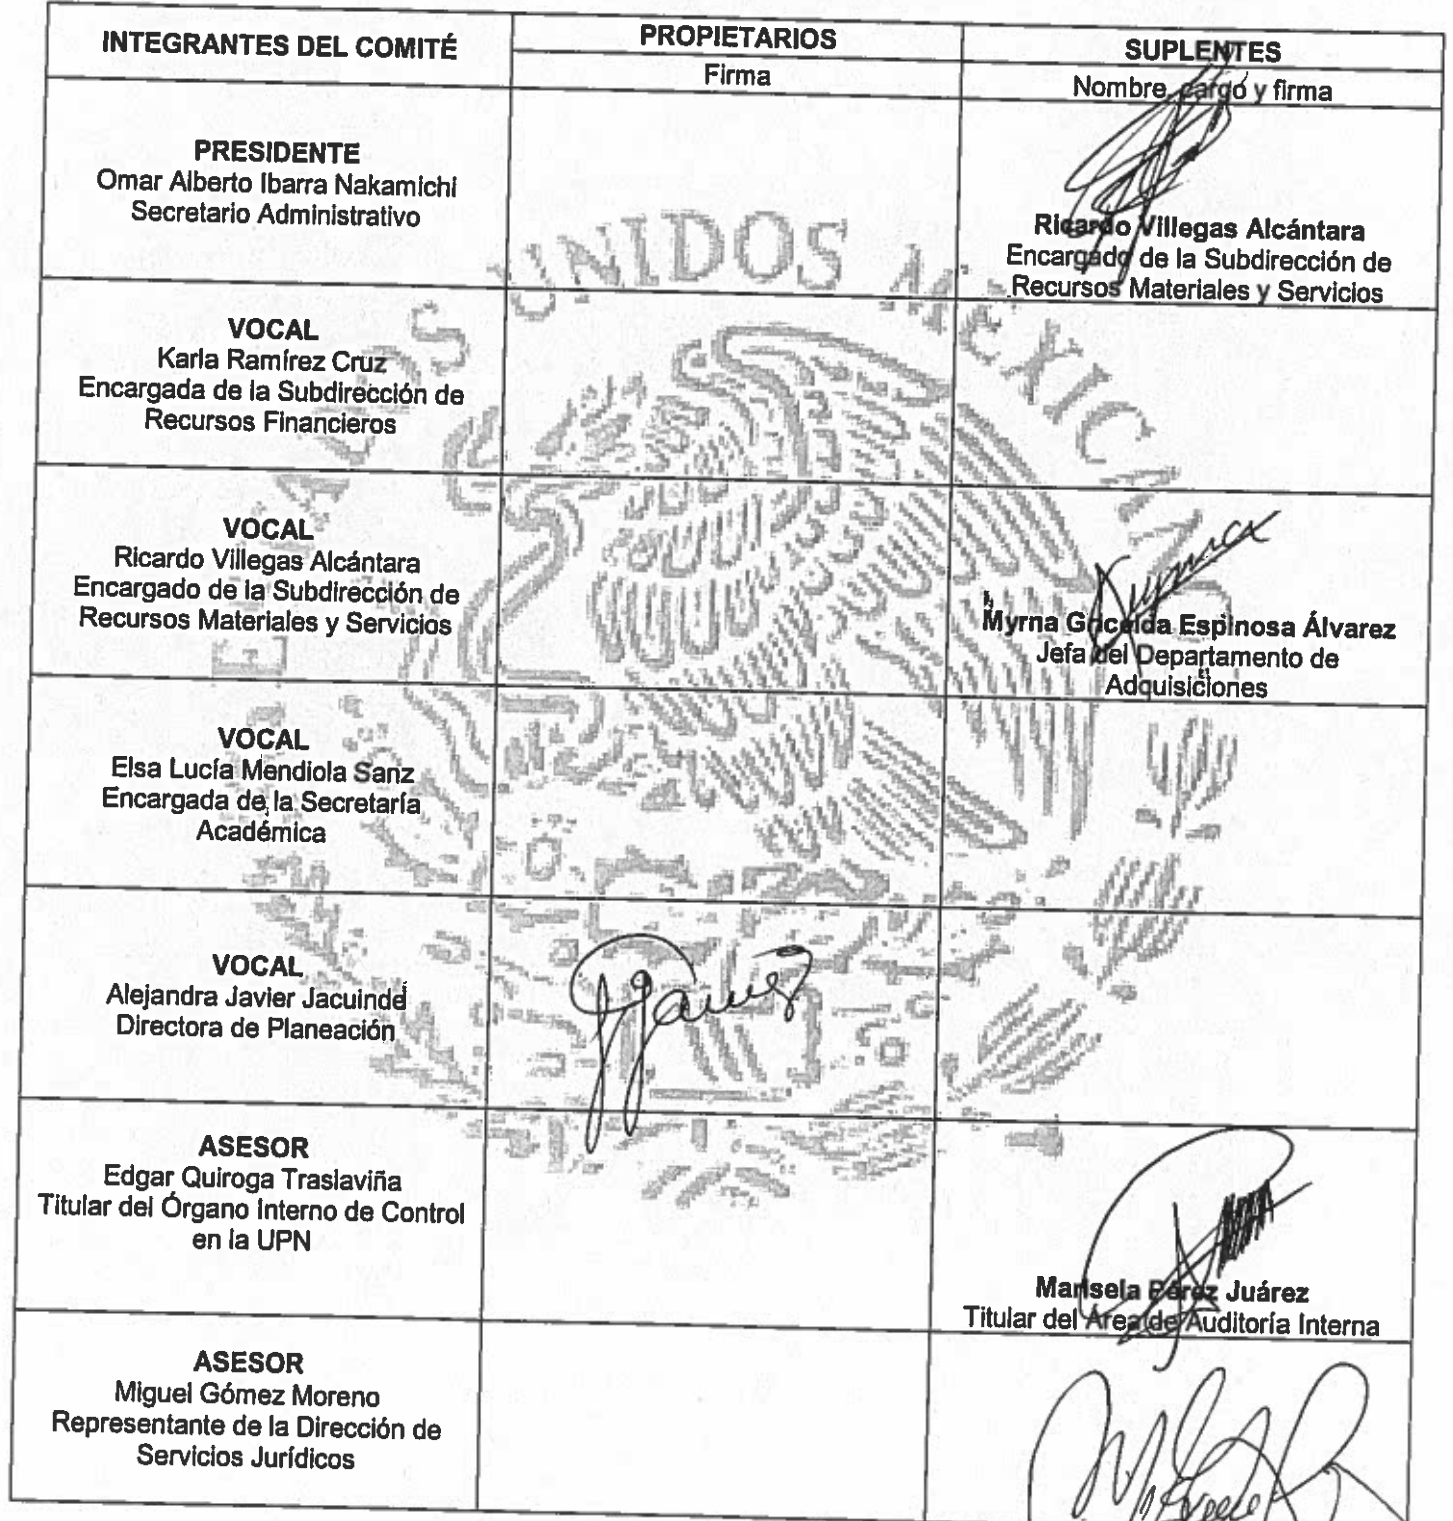 INTEGRANTES DEL COMITÉ
PROPIETARIOS
SUPLENTES
Firma
Nombre, cargo y firma
PRESIDENTE
Omar Alberto Ibarra Nakamichi
Secretario Administrativo
Ricardo Villegas Alcántara
Encargado de la Subdirección de
Recursos Materiales y Servicios
VOCAL
Karla Ramírez Cruz
Encargada de la Subdirección de
Recursos Financieros
VOCAL
Ricardo Villegas Alcántara
Encargado de la Subdirección de
Recursos Materiales y Servicios
Myrna Gricelda Espinosa Álvarez
Jefa del Departamento de
Adquisiciones
VOCAL
Elsa Lucía Mendiola Sanz
Encargada de la Secretaría
Académica
VOCAL
Alejandra Javier Jacuinde
Directora de Planeación
ASESOR
Edgar Quiroga Traslaviña
Titular del Órgano Interno de Control
en la UPN
Marisela Pérez Juárez
Titular del Área de Auditoría Interna
ASESOR
Miguel Gómez Moreno
Representante de la Dirección de
Servicios Jurídicos
UNIDOS MEXICAN